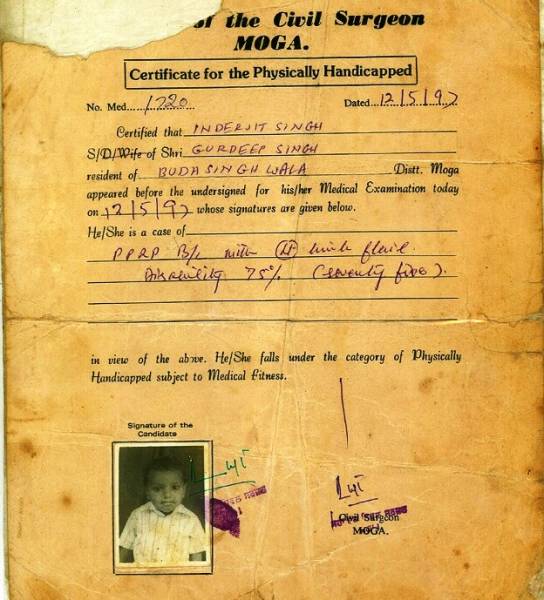 of the Civil Surgeon
MOGA.
Certificate for the Physically Handicapped
No. Med....1720 Dated 12/5/97
Certified that INDERJIT SINGH
S/D/Wife of Shri GURDEEP SINGH
resident of BUDA SINGH WALA Distt. Moga
appeared before the undersigned for his/her Medical Examination today
on 12/5/97 whose signatures are given below.
He/She is a case of
PPRP B/L with Lt limb flail.
Disability 75% (seventy five).
in view of the above. He/She falls under the category of Physically
Handicapped subject to Medical Fitness.
Signature of the
Candidate
Civil Surgeon
MOGA.